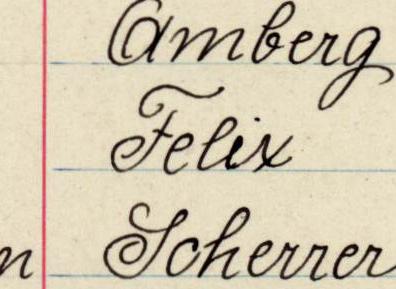 Amberg
Felix
n Scherrer